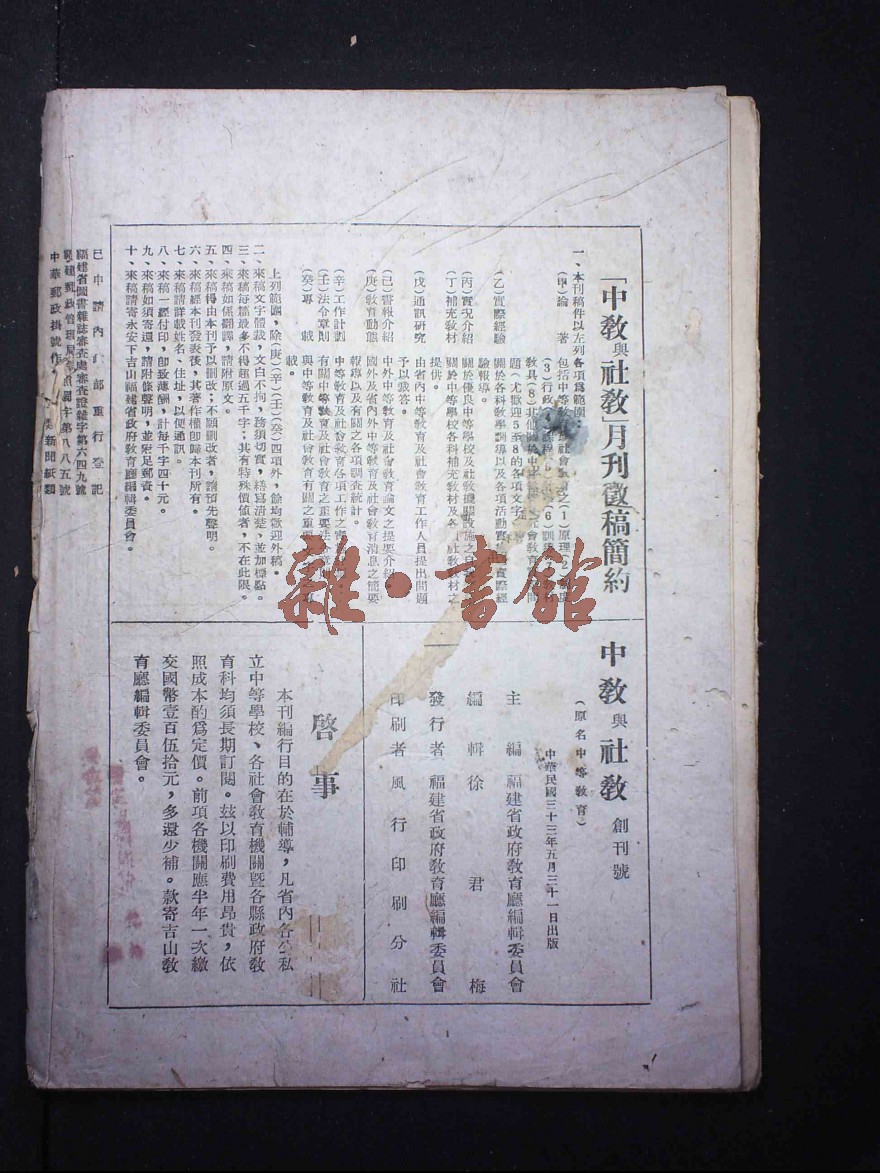 「中教與社教」月刊徵稿簡約
一、本刊稿件以左列各項爲範圍：
(甲)論　著　包括中等教育
社會教
之(1)原理(2)
(3)行政(4)課程
(6)訓
教具(8)其他關於中
社會教育
題(尤歡迎5至8的各項文字)
(乙)實際經驗　關於各科教學訓導以及各項活動實
實際經
驗報導。
(丙)實況介紹　關於優良中等學校及社教機關設施之
(丁)補充教材　關於中等學校各科補充教材及各
社教教材之
提供。
(戊)通訊研究　由省內中等教育及社會教育工作人員提出問題
予以裁答。
(己)書報介紹　中外中等教育及社會教育論文之提要介紹。
(庚)教育動態　國外及省內外中等教育及社會教育消息之簡要
報導以及有關之各項調查統計。
(辛)工作計劃　中等教育及社會教育各項工作之
(壬)法令章則　有關中等教育及社會教育之重要法令章則
(癸)專　載　與中等教育及社會教育有關之重要
載。
上列範圍，除(庚)(辛)(壬)(癸)四項外，餘均歡迎外稿。
二、來稿文字體裁，文白不拘，務須切實，繕寫清楚，並加標點。
三、來稿每篇最多不得超過五千字；其有特殊價值者，不在此限。
四、來稿如係翻譯，請附原文。
五、來稿得由本刊予以刪改；不願刪改者，請預先聲明。
六、來稿經本刊發表後，其著作權卽歸本刊所有。
七、來稿請詳載姓名、住址，以便通訊。
八、來稿一經付印，卽致薄酬，計每千字四十元。
九、來稿如須寄還，請附條聲明，並附足郵資。
十、來稿請寄永安下吉山福建省政府教育廳編輯委員會。
已申請內
部重行登記
福建省圖書雜誌審查處審查證雜字第六四九號
福建郵政管理局
字第八八五號
中華郵政掛號作
類新聞紙類
中教與社教　創刊號
(原名中等教育)
中華民國三十三年五月三十一日出版
主編　福建省政府教育廳編輯委員會
編輯　徐君梅
發行者　福建省政府教育廳編輯委員會
印刷者　風行印刷分社
啓事
本刊編行目的在於輔導，凡省內各公私
立中等學校、各社會教育機關暨各縣政府教
育科均須長期訂閱。茲以印刷費用昂貴，依
照成本酌爲定價。前項各機關應半年一次繳
交國幣壹百伍拾元，多還少補。款寄吉山教
育廳編輯委員會。
雜·書館